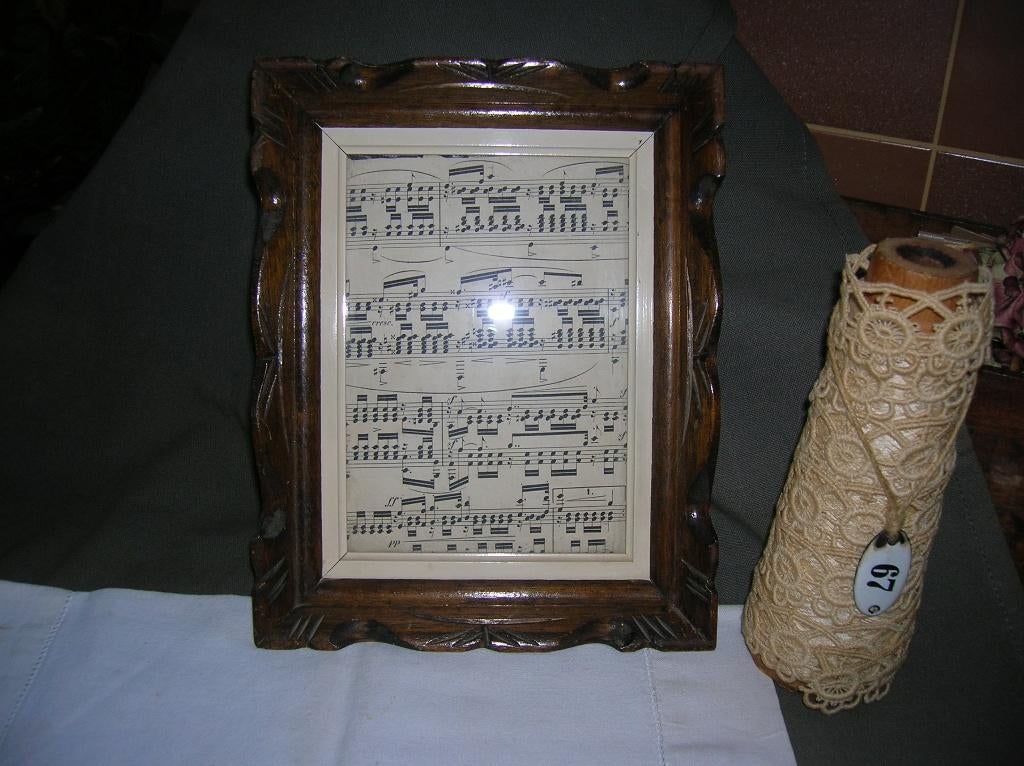 cresc.
ff
1.
pp
67
G